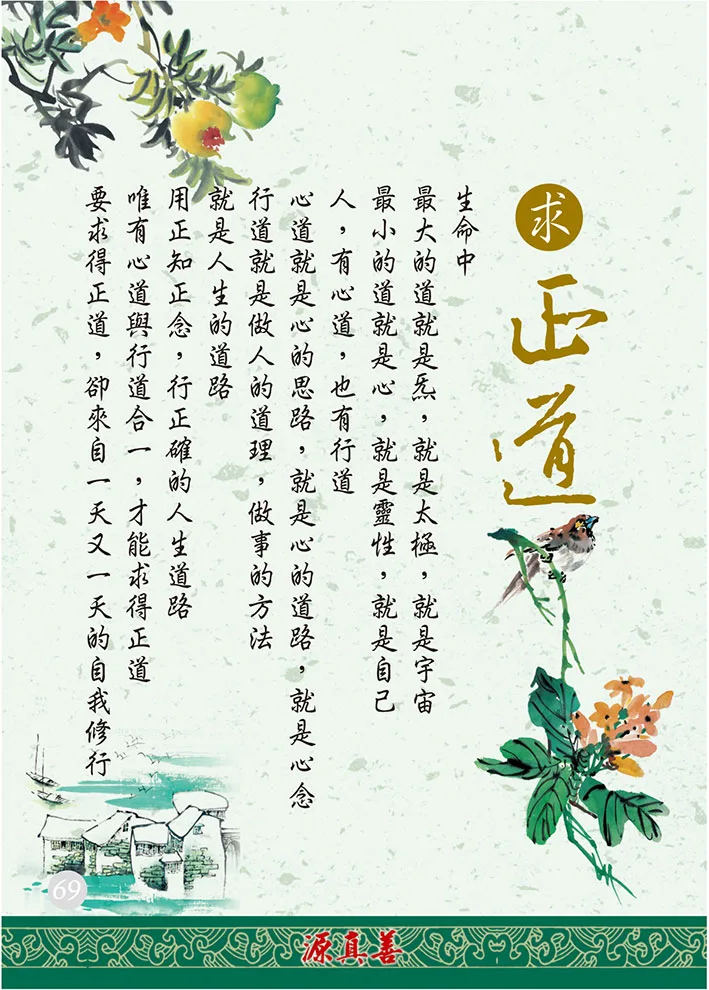 求正道
生命中
最大的道就是炁，就是太極，就是宇宙
最小的道就是心，就是靈性，就是自己
人，有心道，也有行道
心道就是心的思路，就是心的道路，就是心念
行道就是做人的道理，做事的方法
就是人生的道路
用正知正念，行正確的人生道路
唯有心道與行道合一，才能求得正道
要求得正道，卻來自一天又一天的自我修行
69
源真善